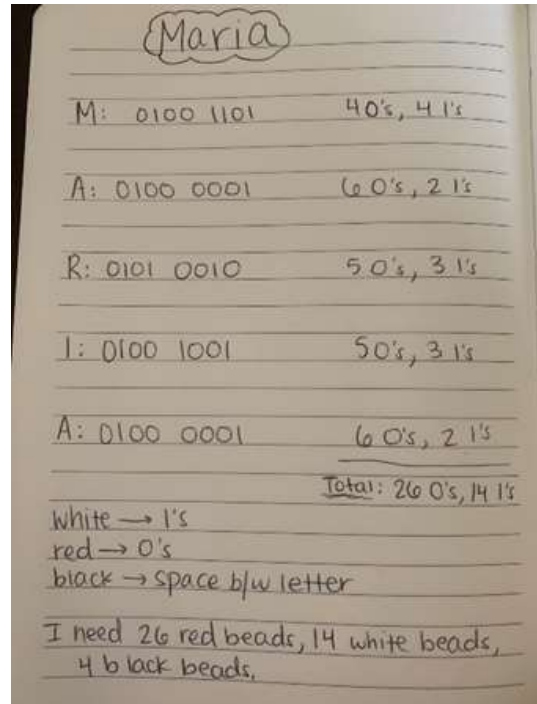 Maria
M: 0100 1101 4 0's, 4 1's
A: 0100 0001 6 0's, 2 1's
R: 0101 0010 5 0's, 3 1's
I: 0100 1001 5 0's, 3 1's
A: 0100 0001 6 0's, 2 1's
Total: 26 0's, 14 1's
white → 1's
red → 0's
black → space b/w letter
I need 26 red beads, 14 white beads,
4 black beads.